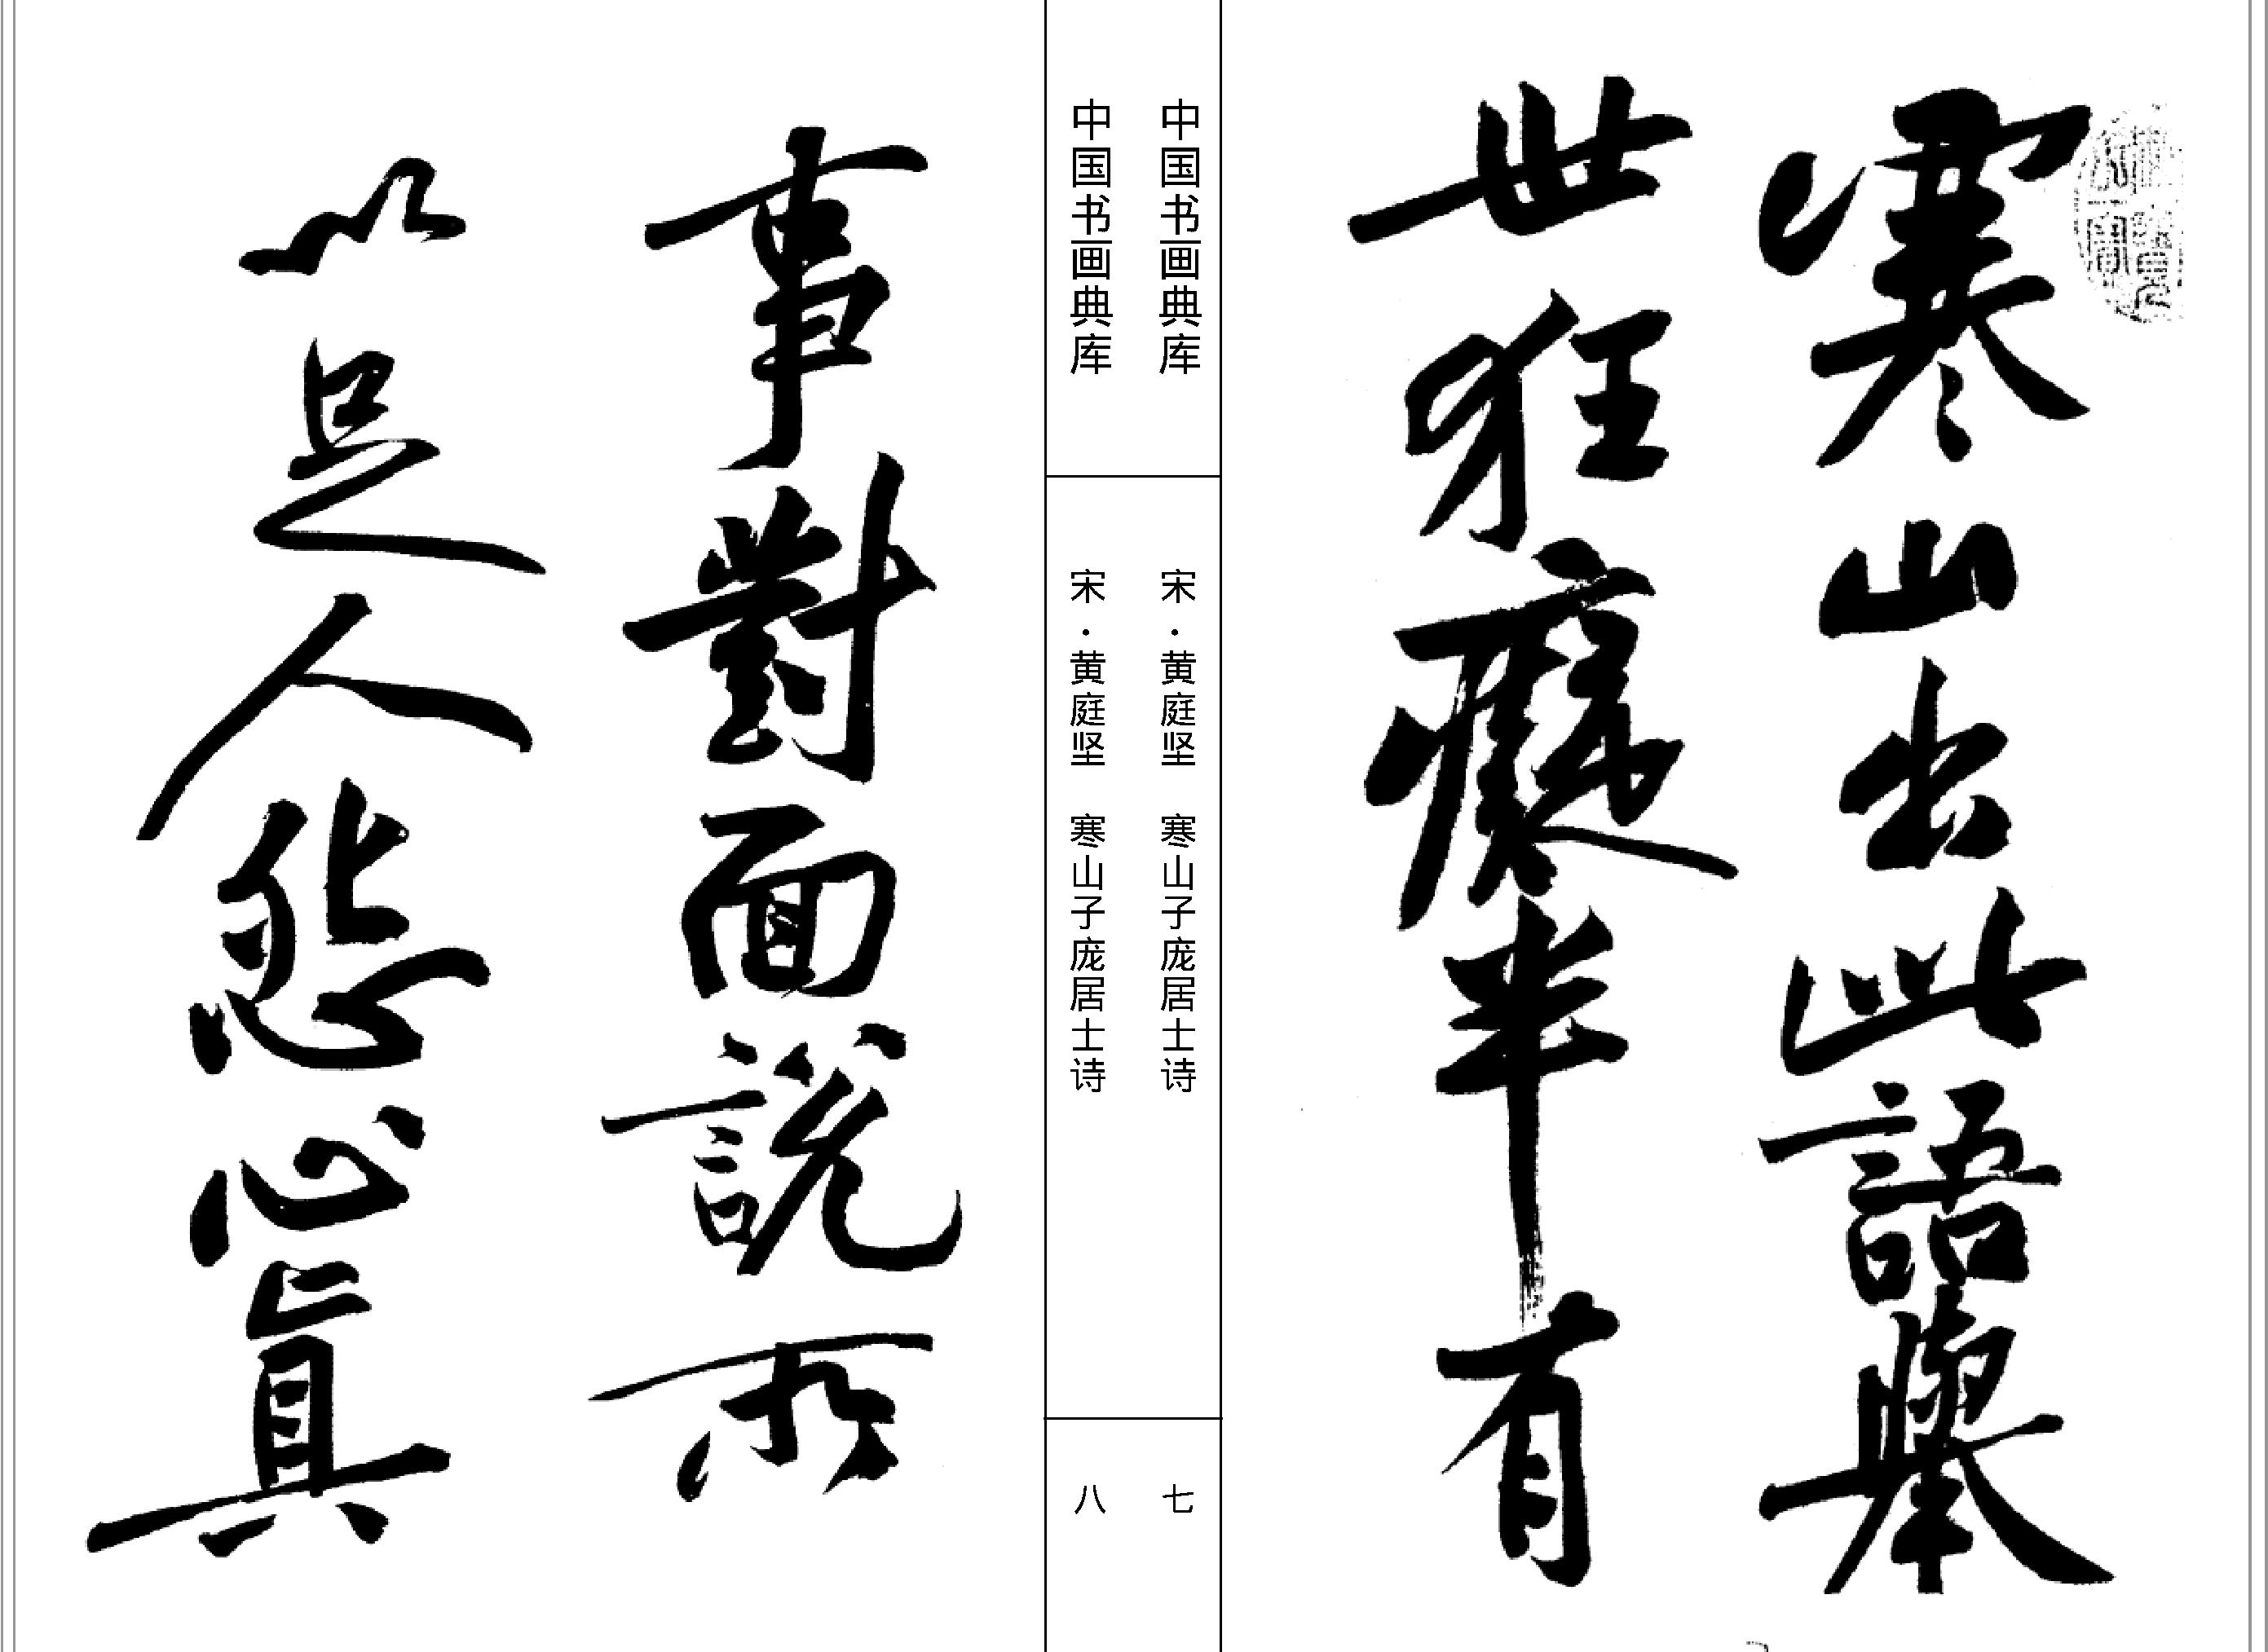 寒山出此語舉
世狂癡半有
中国书画典库
宋·黄庭坚 寒山子庞居士诗
七
中国书画典库
宋·黄庭坚 寒山子庞居士诗
八
事對面說所
以足人怨心真